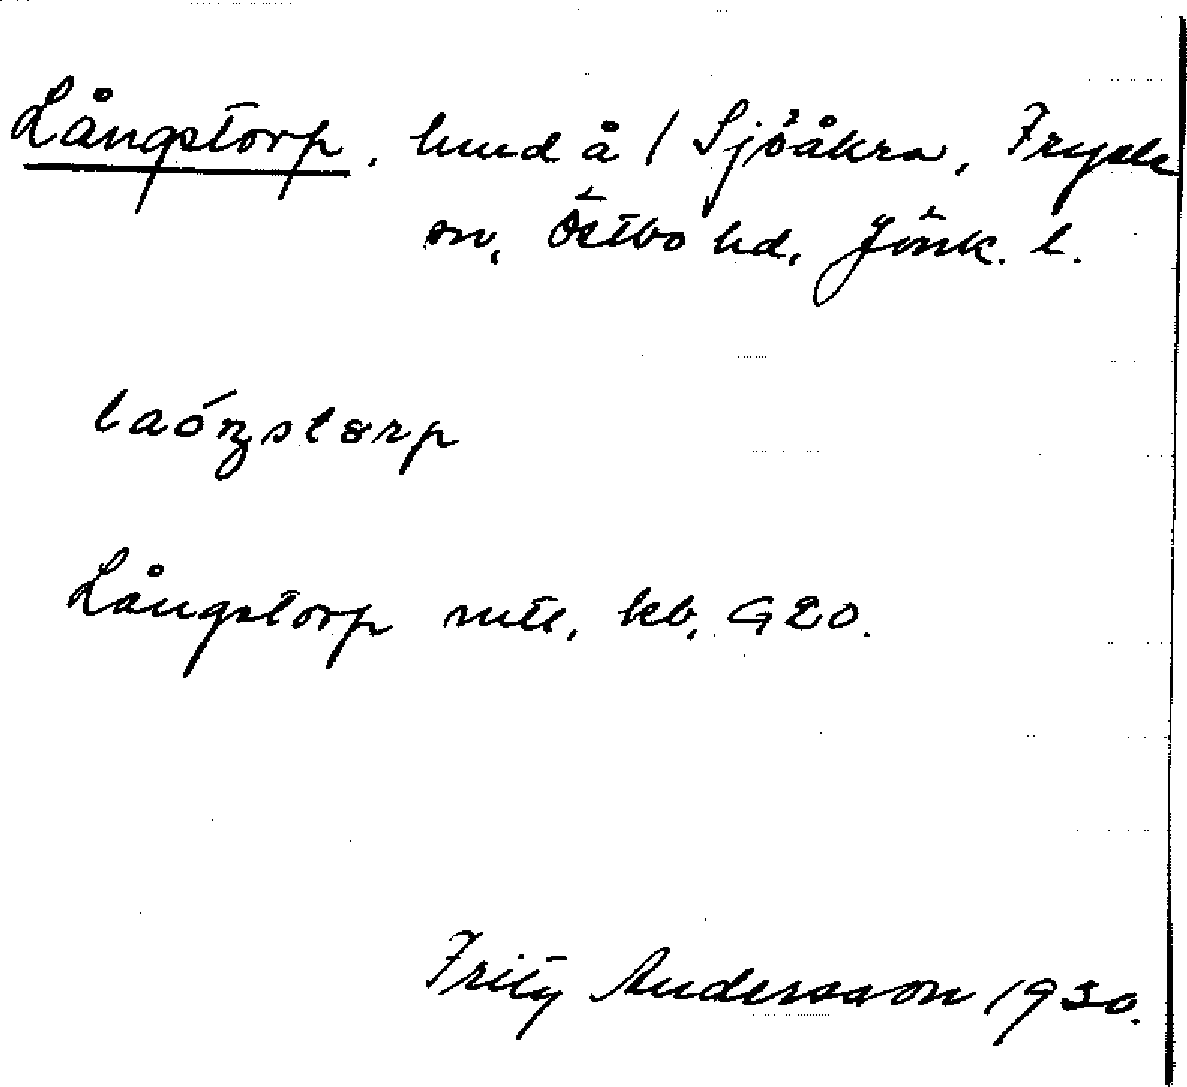 Långstorp, lund å / Sjöåkra, Fryele
sn, Östbo hd, Jönk. l.
laóŋstorp
Långstorp mtl, kb, G20.
Fritz Andersson 1930.